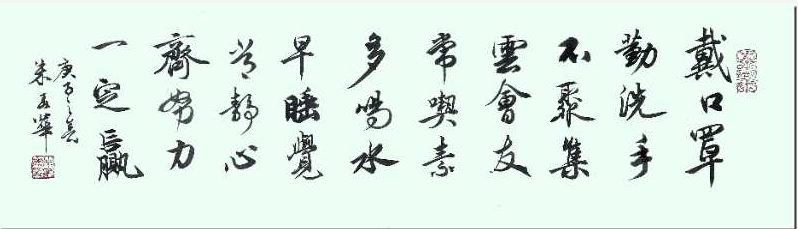 戴口罩
勤洗手
不聚集
雲會友
常喫素
多喝水
早睡覺
靜心
齊努力
一定贏
庚子之春
朱華